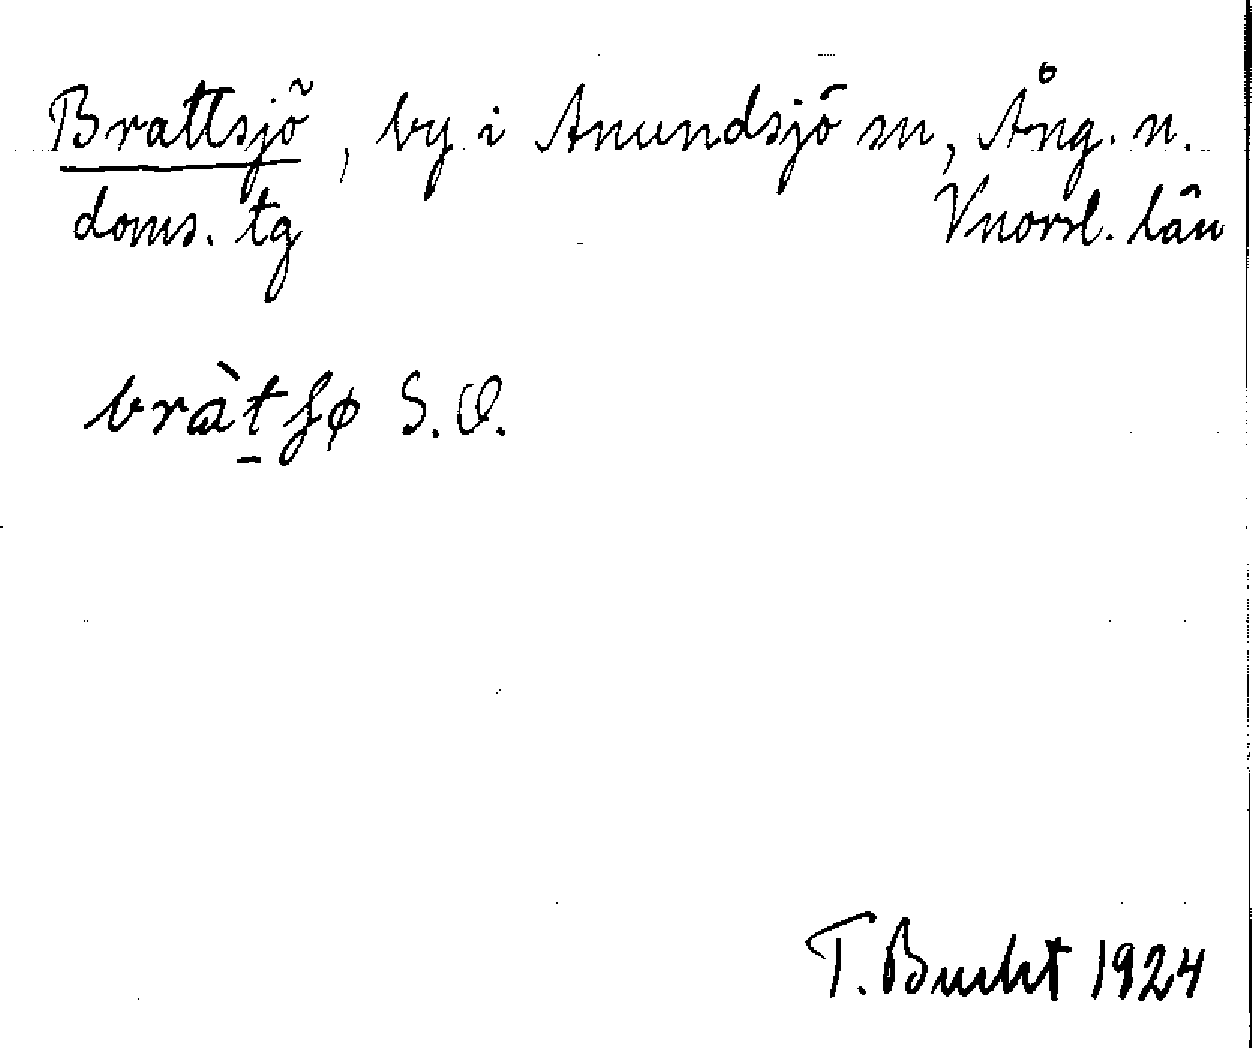 Brattsjö, by i Anundsjö sn, Ång. n.
doms. tg Vnorrl. län
bràt̠ʃø S. O.
T. Bucht 1924